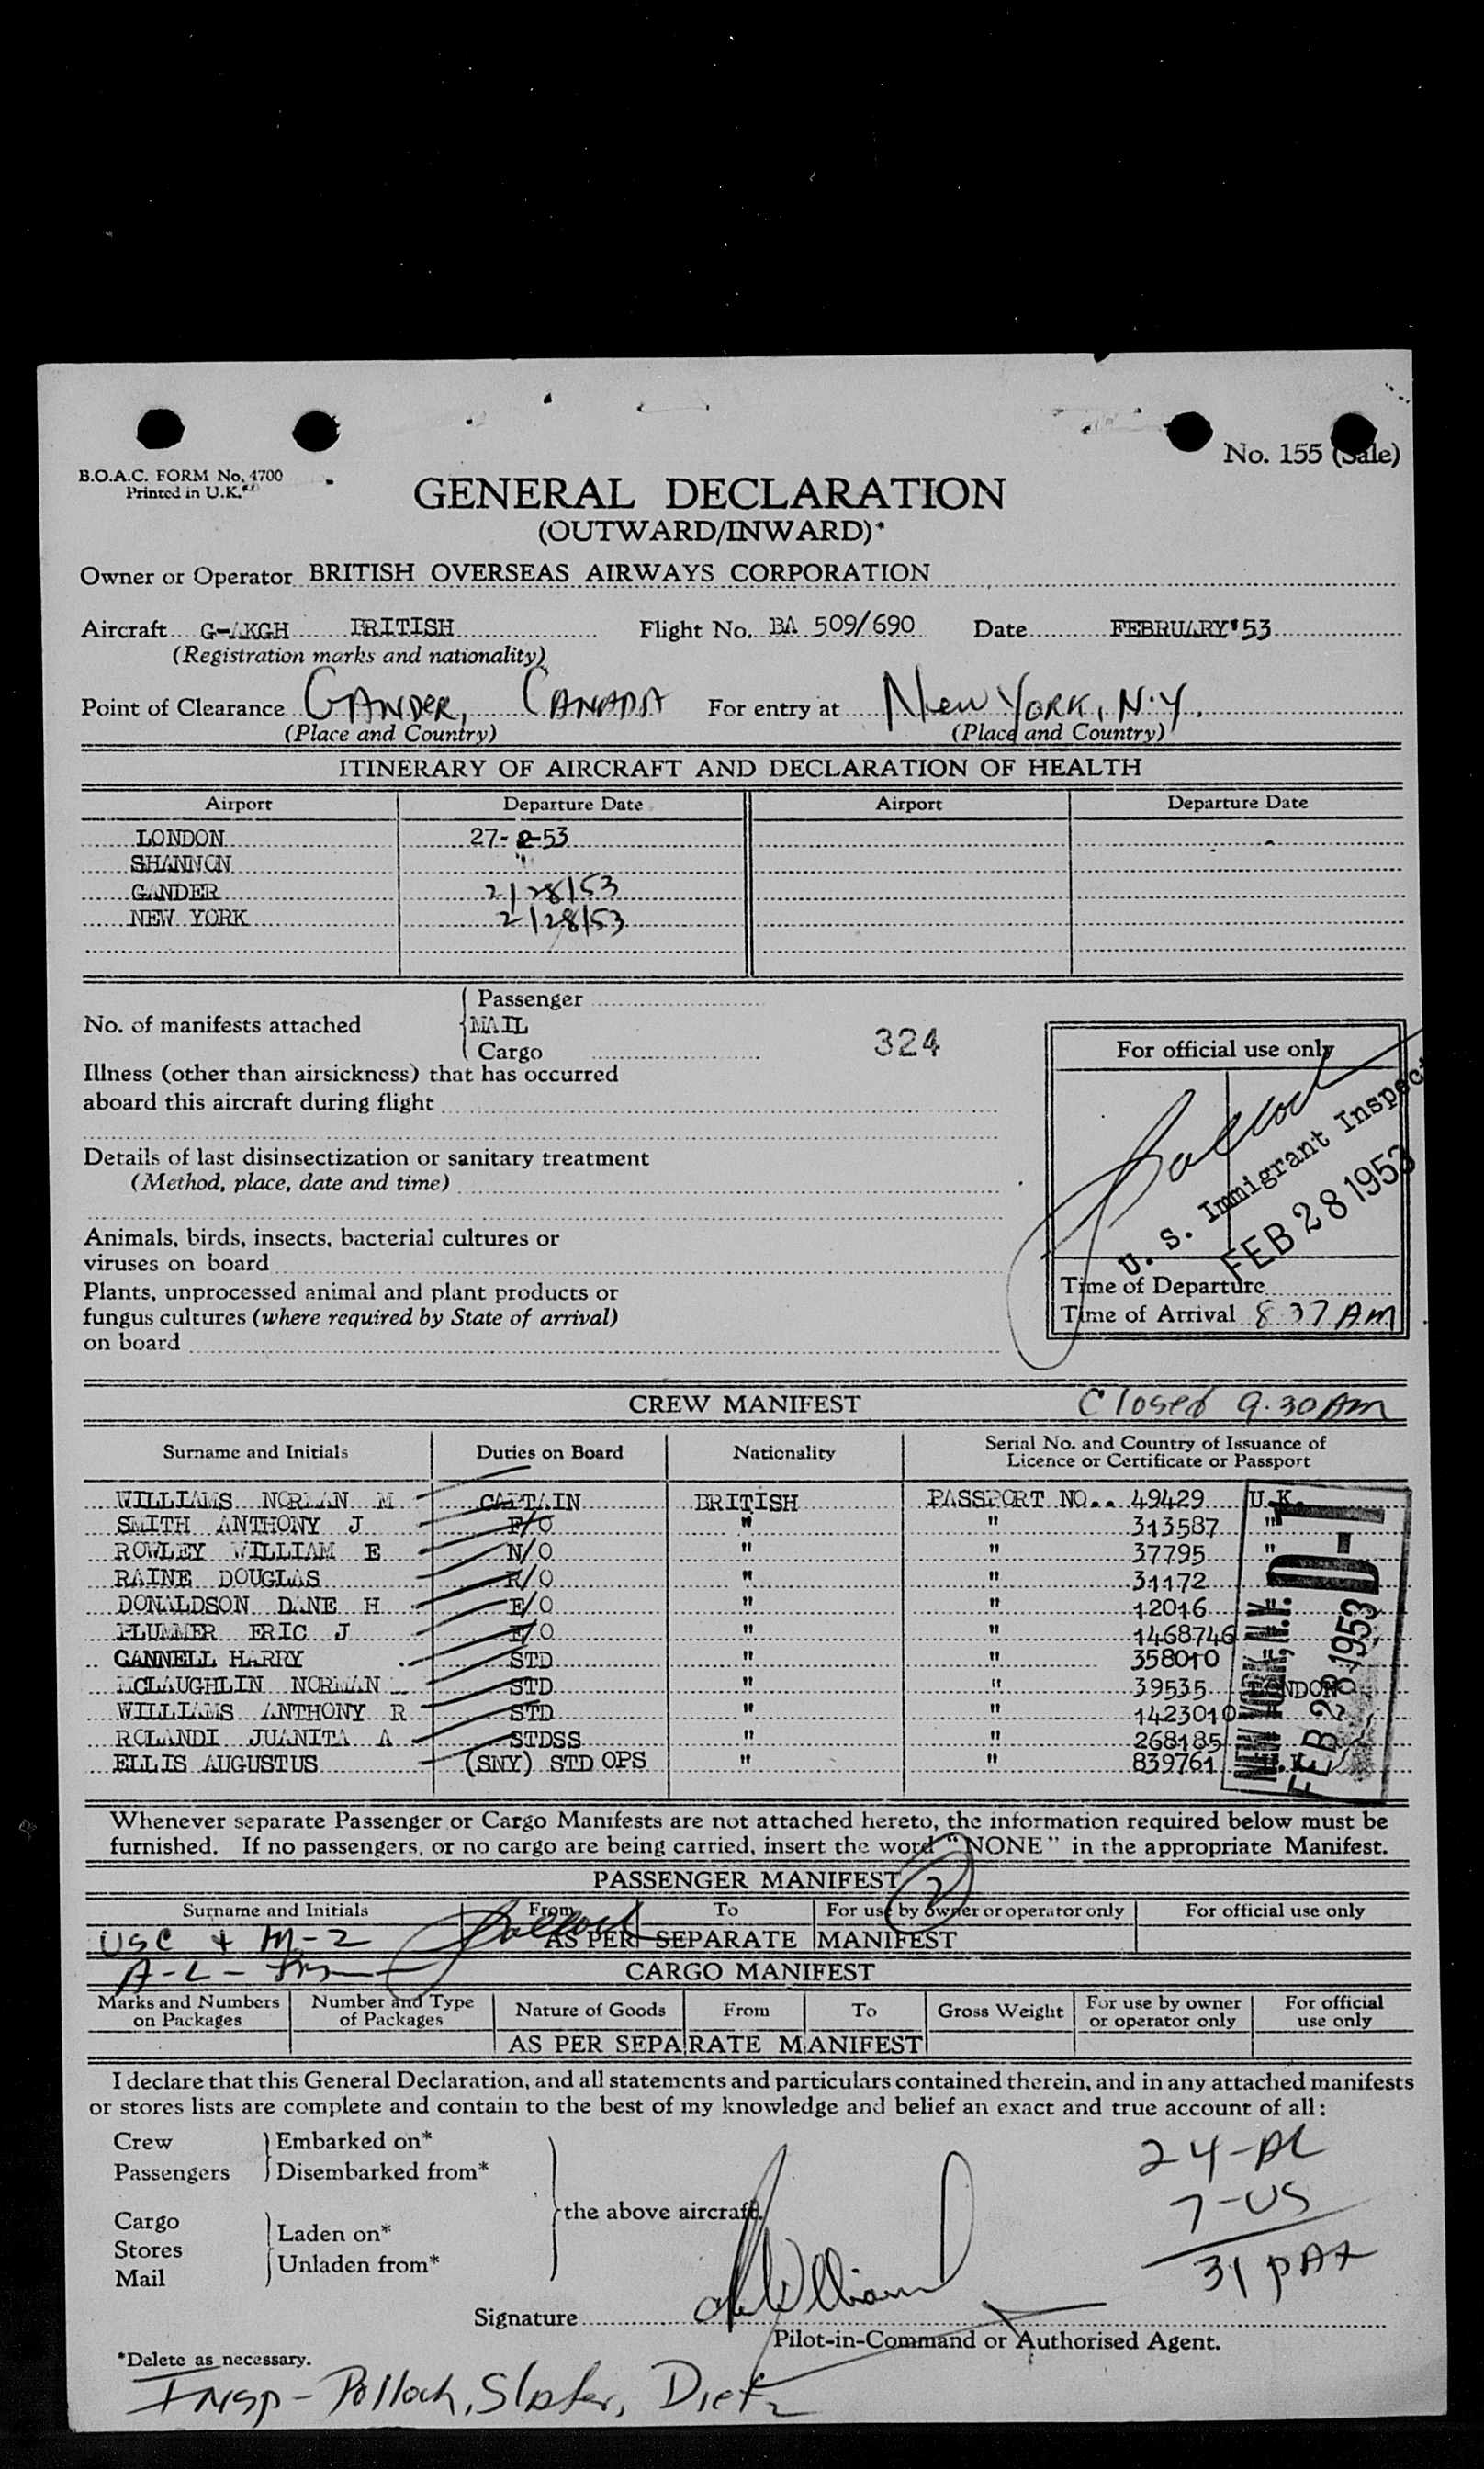 No. 155 (Sale)
B.O.A.C. FORM No. 4700
Printed in U.K.
GENERAL DECLARATION
(OUTWARD/INWARD)*
Owner or Operator BRITISH OVERSEAS AIRWAYS CORPORATION
Aircraft G-AKGH BRITISH Flight No. BA 509/690 Date FEBRUARY'53
(Registration marks and nationality)
Point of Clearance GANDER, CANADA For entry at New York, N.Y.
(Place and Country) (Place and Country)
ITINERARY OF AIRCRAFT AND DECLARATION OF HEALTH
Airport Departure Date Airport Departure Date
LONDON 27-2-53
SHANNON "
GANDER 2/28/53
NEW YORK 2/28/53
Passenger
No. of manifests attached MAIL
Cargo
324
Illness (other than airsickness) that has occurred
aboard this aircraft during flight
Details of last disinsectization or sanitary treatment
(Method, place, date and time)
Animals, birds, insects, bacterial cultures or
viruses on board
Plants, unprocessed animal and plant products or
fungus cultures (where required by State of arrival)
on board
For official use only
Pollock
U. S. Immigrant Inspect
FEB 28 1953
Time of Departure
Time of Arrival 8 37 AM
CREW MANIFEST Closed 9.30 Am
Surname and Initials Duties on Board Nationality Serial No. and Country of Issuance of
Licence or Certificate or Passport
WILLIAMS NORMAN M CAPTAIN BRITISH PASSPORT NO.. 49429 U.K.
SMITH ANTHONY J F/O " " 313587 "
ROWLEY WILLIAM E N/O " " 37795 "
RAINE DOUGLAS R/O " " 31172
DONALDSON DANE H E/O " " 12016
PLUMMER ERIC J E/O " " 1468746
CANNELL HARRY STD " " 358010
MCLAUGHLIN NORMAN STD " " 39535 LONDON
WILLIAMS ANTHONY R STD " " 1423010
ROLANDI JUANITA A STDSS " " 268185
ELLIS AUGUSTUS (SNY) STD OPS " " 839761 U.K.
NEW YORK, N.Y. D-1
FEB 28 1953
Whenever separate Passenger or Cargo Manifests are not attached hereto, the information required below must be
furnished. If no passengers, or no cargo are being carried, insert the word "NONE" in the appropriate Manifest.
PASSENGER MANIFEST 2
Surname and Initials From To For use by owner or operator only For official use only
USC + M-2 Pollock AS PER SEPARATE MANIFEST
A-L-
CARGO MANIFEST
Marks and Numbers on Packages Number and Type of Packages Nature of Goods From To Gross Weight For use by owner or operator only For official use only
AS PER SEPARATE MANIFEST
I declare that this General Declaration, and all statements and particulars contained therein, and in any attached manifests
or stores lists are complete and contain to the best of my knowledge and belief an exact and true account of all:
Crew Embarked on*
Passengers Disembarked from*
the above aircraft.
Cargo Laden on*
Stores
Mail Unladen from*
24-AL
7-US
31 pAx
Signature
Pilot-in-Command or Authorised Agent.
*Delete as necessary.
Insp- Pollock, Slater, Dietz